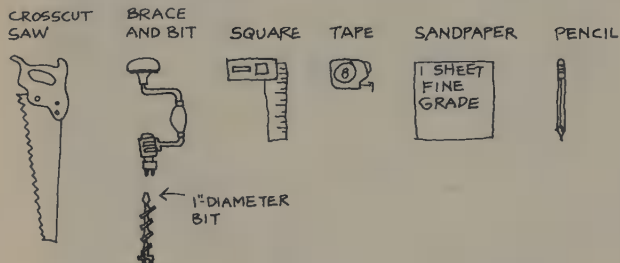 CROSSCUT
SAW
BRACE
AND BIT
SQUARE
TAPE
SANDPAPER
PENCIL
8
1 SHEET
FINE
GRADE
1"-DIAMETER
BIT